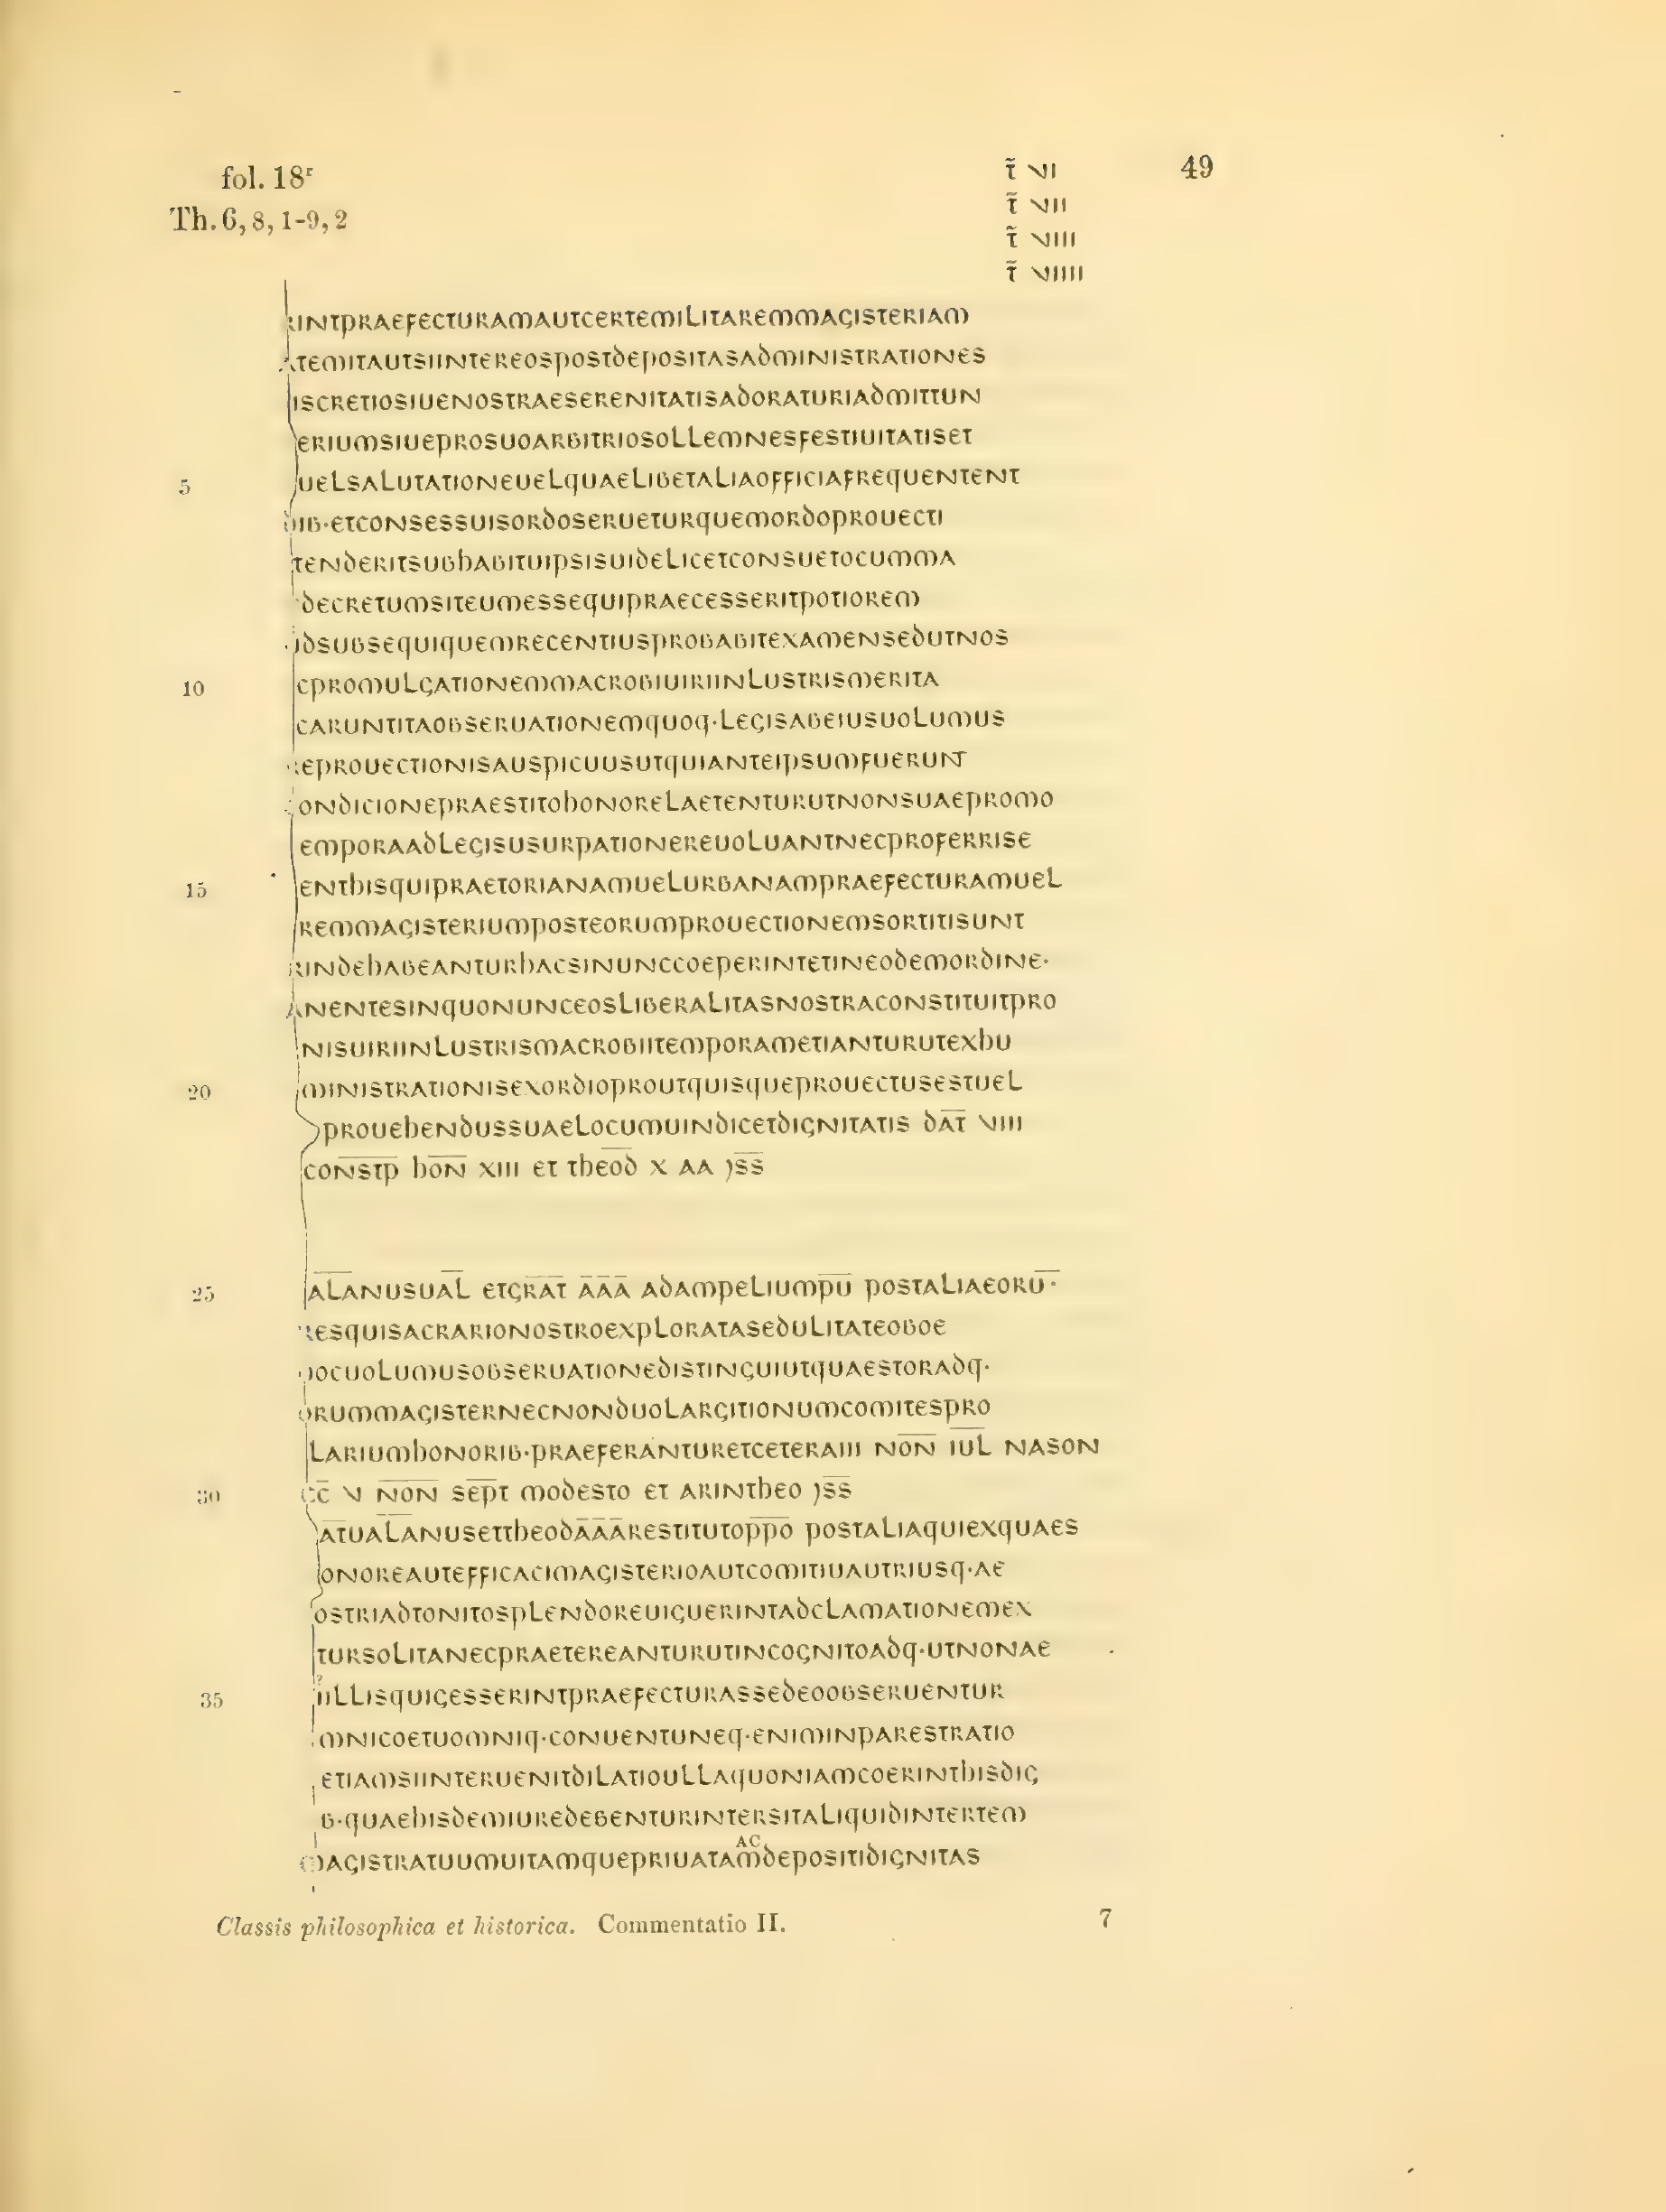 fol. 18r
Th. 6, 8, 1-9, 2
49
t̄ VI
t̄ VII
t̄ VIII
t̄ VIIII
RINTPRAEFECTURAMAUTCERTEMILITAREMMAGISTERIAM
ATEMITAUTSIINTEREOSPOSTDEPOSITASADMINISTRATIONES
ISCRETIOSIUENOSTRAESERENITATISADORATURIADMITTUN
ERIUMSIUEPROSUOARBITRIOSOLLEMNESFESTIUITATISET
5 UELSALUTATIONEUELQUAELIBETALIAOFFICIAFREQUENTENT
DIB·ETCONSESSUISORDOSERUETURQUEMORDOPROUECTI
TENDERITSUBHABITUIPSISUIDELICETCONSUETOCUMMA
DECRETUMSITEUMESSEQUIPRAECESSERITPOTIOREM
UDSUBSEQUIQUEMRECENTIUSPROBABITEXAMENSEDUTNOS
10 CPROMULGATIONEMMACROBIUIRIINLUSTRISMERITA
CARUNTITAOBSERUATIONEMQUOQ·LEGISABEIUSUOLUMUS
REPROUECTIONISAUSPICUUSUTQUIANTEIPSUMFUERUNT
CONDICIONEPRAESTITOHONORELAETENTURUTNONSUAEPROMO
EMPORAADLEGISUSURPATIONEREUOLUANTNECPROFERRISE
15 ENTHISQUIPRAETORIANAMUELURBANAMPRAEFECTURAMUEL
REMMAGISTERIUMPOSTEORUMPROUECTIONEMSORTITISUNT
RINDEHABEANTURHACSINUNCCOEPERINTETINEODEMORDINE·
ANENTESINQUONUNCEOSLIBERALITASNOSTRACONSTITUITPRO
NISUIRIINLUSTRISMACROBIITEMPORAMETIANTURUTEXHU
20 MINISTRATIONISEXORDIOPROUTQUISQUEPROUECTUSESTUEL
PROUEHENDUSSUAELOCUMUINDICETDIGNITATIS DA̅T̅ VIII
CON̅S̅T̅P̅ HO̅N̅ XIII ET THE̅O̅D X AA )S̅S̅
25 A̅L̅ANUSUA̅L̅ ETGR̅A̅T̅ A̅A̅A̅ ADAMPELIUMP̅U̅ POSTALIAEORU̅·
RESQUISACRARIONOSTROEXPLORATASEDULITATEOBOE
HOCUOLUMUSOBSERUATIONEDISTINGUIUTQUAESTORADQ·
ORUMMAGISTERNECNONDUOLARGITIONUMCOMITESPRO
LARIUMHONORIB·PRAEFERANTURETCETERAIII NO̅N̅ IU̅L̅ NASON
30 CC̅ V N̅O̅N̅ SE̅P̅T MODESTO ET ARINTHEO )S̅S̅
A̅T̅UA̅L̅A̅NUSETTHEODA̅A̅A̅RESTITUTOP̅P̅O̅ POSTALIAQUIEXQUAES
ONOREAUTEFFICACIMAGISTERIOAUTCOMITIUAUTRIUSQ·AE
OSTRIADTONITOSPLENDOREUIGUERINTADCLAMATIONEMEX
TURSOLITANECPRAETEREANTURUTINCOGNITOADQ·UTNONAE
35 IILLISQUIGESSERINTPRAEFECTURASSEDEOOBSERUENTUR
MNICOETUOMNIQ·CONUENTUNEQ·ENIMINPARESTRATIO
ETIAMSIINTERUENITDILATIOULLAQUONIAMCOERINTHISDIG
B·QUAEHISDEMIUREDEBENTURINTERSITALIQUIDINTERTEM
AC
MAGISTRATUUMUITAMQUEPRIUATAMDEPOSITIDIGNITAS
Classis philosophica et historica. Commentatio II.
7